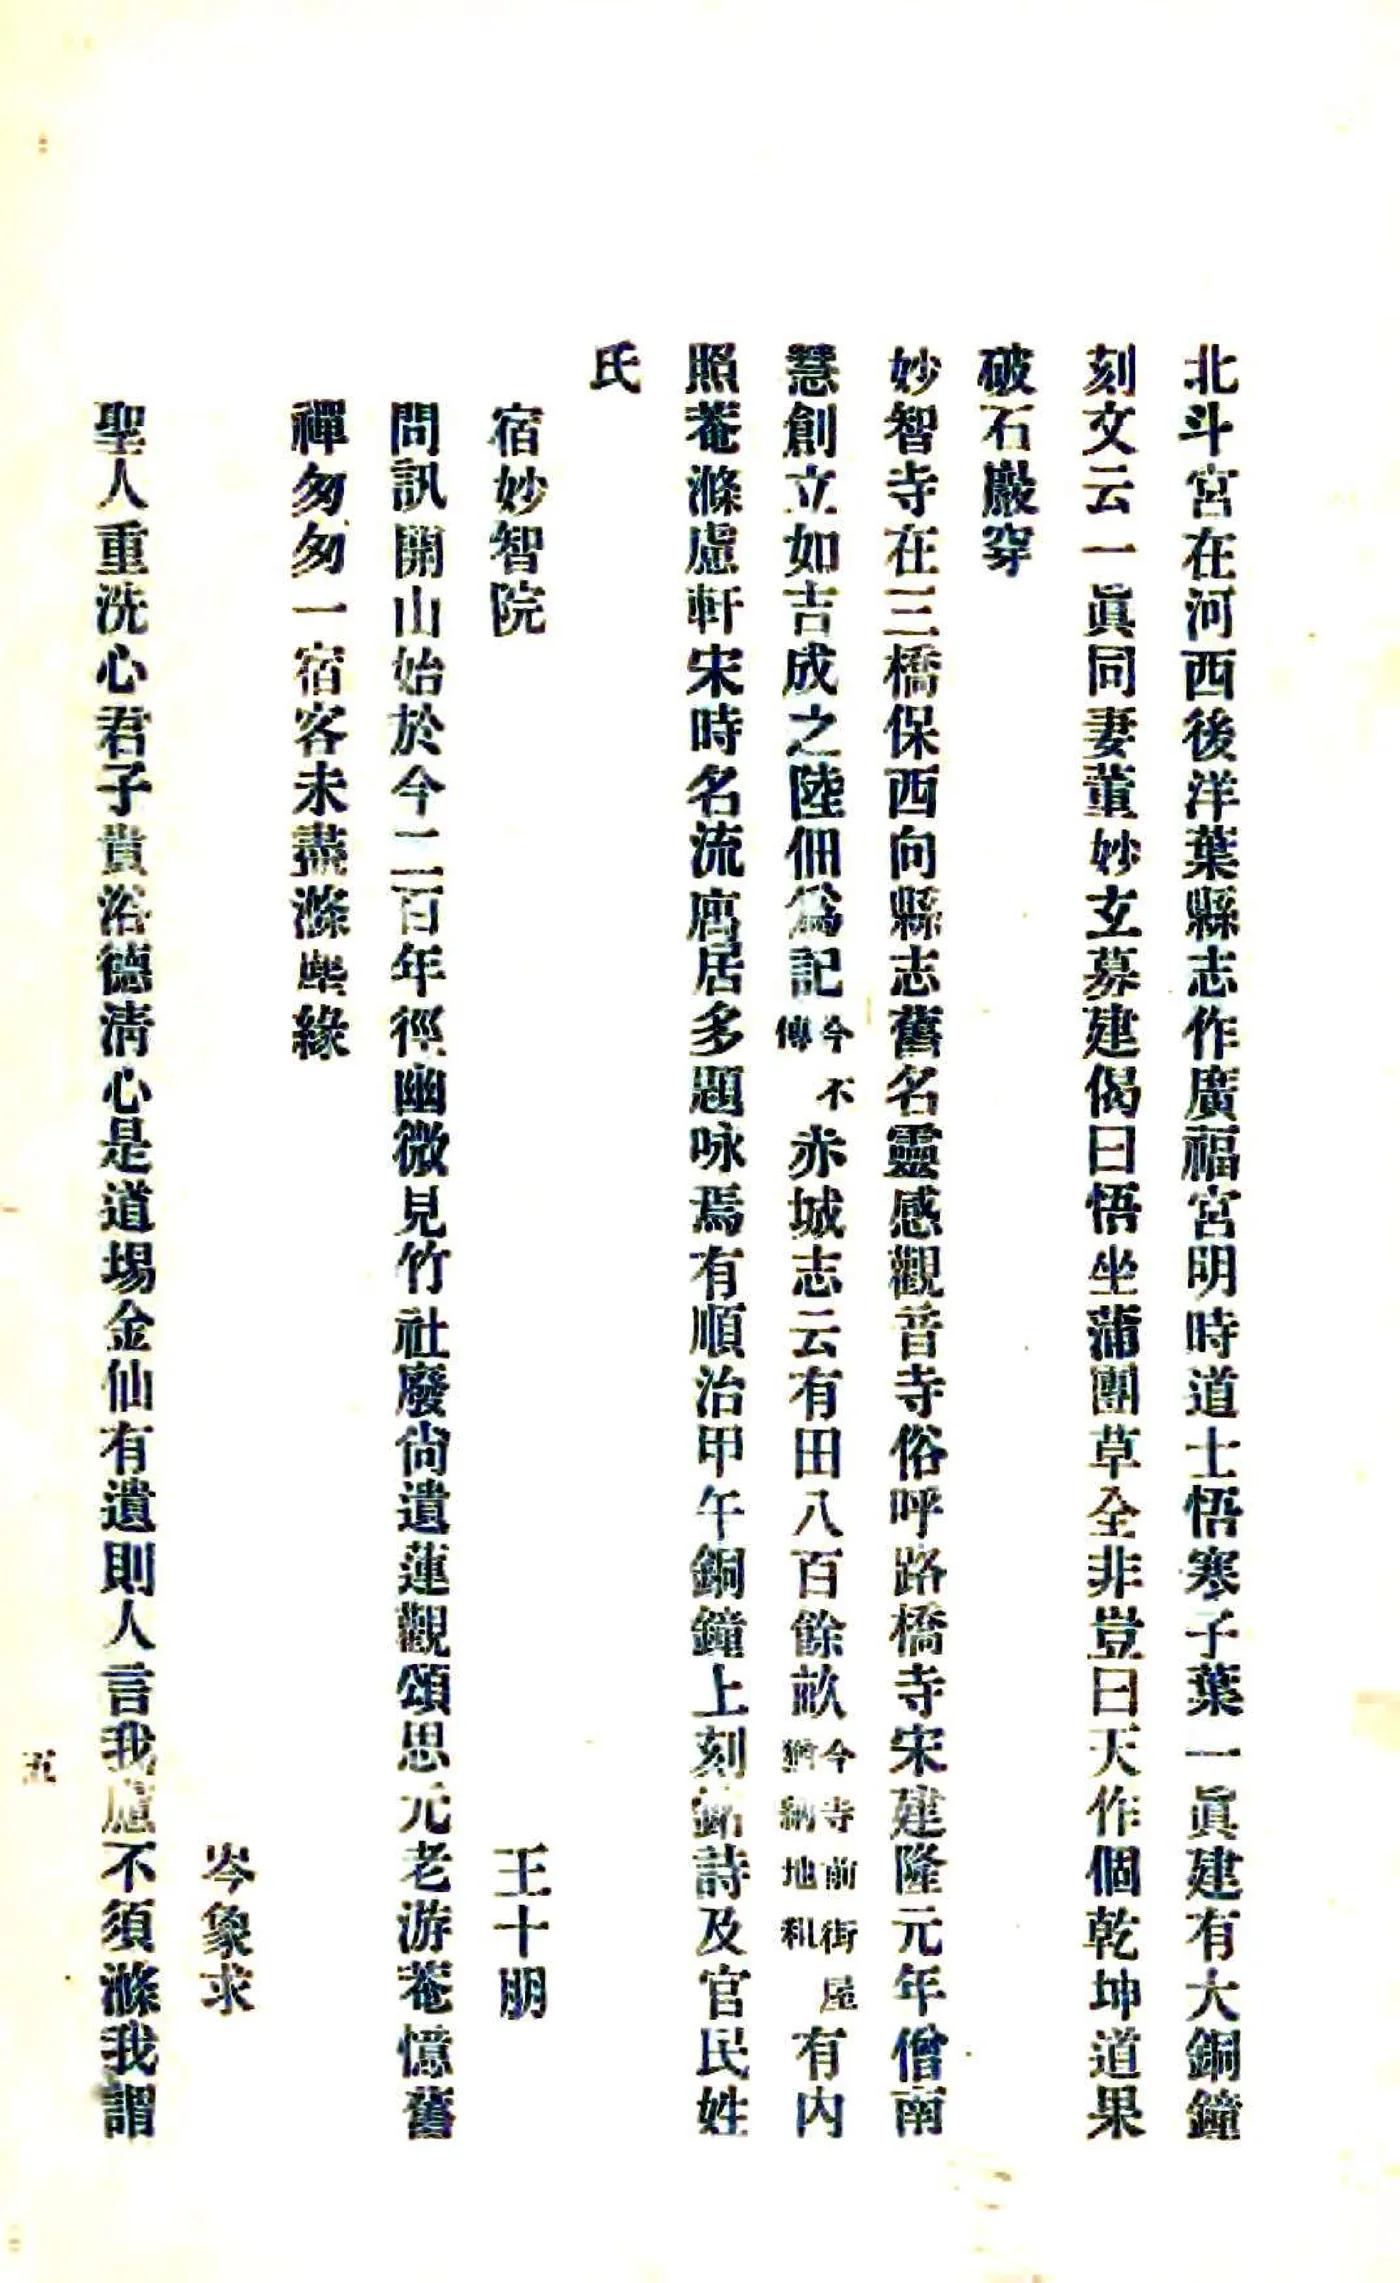 北斗宮在河西後洋葉縣志作廣福宮明時道士悟寒子葉一眞建有大銅鐘
刻文云一眞同妻董妙玄募建偈曰悟坐蒲團草全非豈曰天作個乾坤道果
破石巖穿
妙智寺在三橋保西向縣志舊名靈感觀音寺俗呼路橋寺宋建隆元年僧南
慧創立如吉成之陸佃爲記今不傳赤城志云有田八百餘畝今寺前街屋猶納地租有内
照菴滌慮軒宋時名流寓居多題咏焉有順治甲午銅鐘上刻銘詩及官民姓
氏
宿妙智院 王十朋
問訊開山始於今二百年徑幽微見竹社廢尙遺蓮觀頌思元老游菴憶舊
禪匆匆一宿客未盡滌塵緣
岑象求
聖人重洗心君子貴浴德淸心是道場金仙有遺則人言我慮不須滌我謂
五